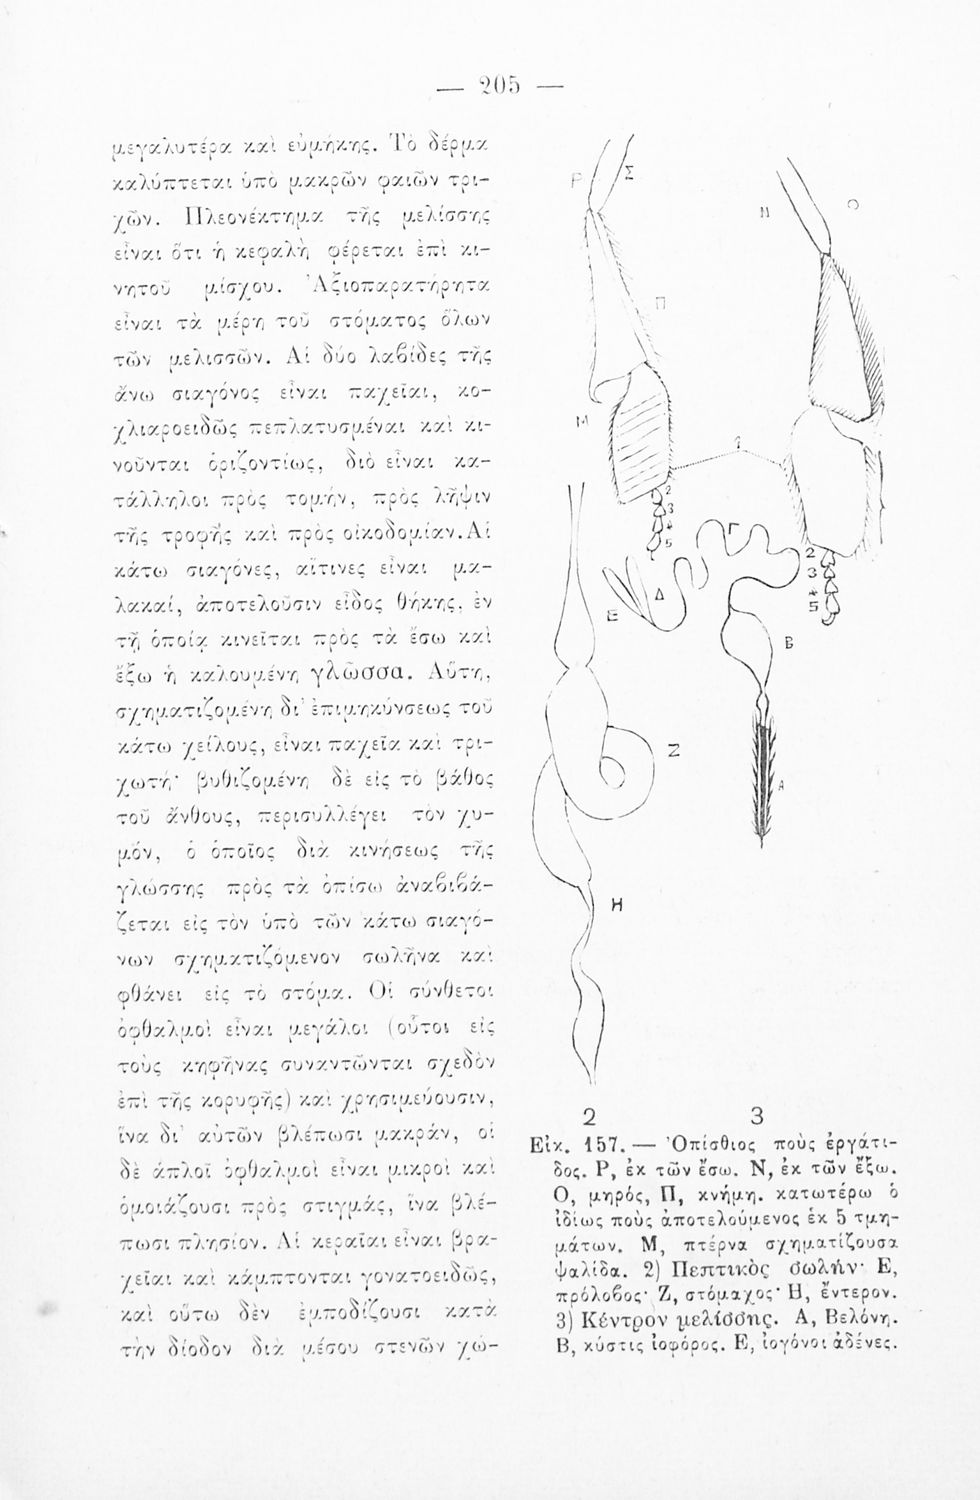 — 205 —
μεγαλυτέρα καὶ εὐμήκης. Τὸ δέρμα
καλύπτεται ὑπὸ μακρῶν φαιῶν τρι-
χῶν. Πλεονέκτημα τῆς μελίσσης
εἶναι ὅτι ἡ κεφαλὴ φέρεται ἐπὶ κι-
νητοῦ μίσχου. Ἀξιοπαρατήρητα
εἶναι τὰ μέρη τοῦ στόματος ὅλων
τῶν μελισσῶν. Αἱ δύο λαβίδες τῆς
ἄνω σιαγόνος εἶναι παχεῖαι, κο-
χλιαροειδῶς πεπλατυσμέναι καὶ κι-
νοῦνται ὁριζοντίως, διὸ εἶναι κα-
τάλληλοι πρὸς τομήν, πρὸς λῆψιν
τῆς τροφῆς καὶ πρὸς οἰκοδομίαν. Αἱ
κάτω σιαγόνες, αἵτινες εἶναι μα-
λακαί, ἀποτελοῦσιν εἶδος θήκης, ἐν
τῇ ὁποίᾳ κινεῖται πρὸς τὰ ἔσω καὶ
ἔξω ἡ καλουμένη γλῶσσα. Αὕτη,
σχηματιζομένη δι' ἐπιμηκύνσεως τοῦ
κάτω χείλους, εἶναι παχεῖα καὶ τρι-
χωτή· βυθιζομένη δὲ εἰς τὸ βάθος
τοῦ ἄνθους, περισυλλέγει τὸν χυ-
μόν, ὁ ὁποῖος διὰ κινήσεως τῆς
γλώσσης πρὸς τὰ ὀπίσω ἀναβιβά-
ζεται εἰς τὸν ὑπὸ τῶν κάτω σιαγό-
νων σχηματιζόμενον σωλῆνα καὶ
φθάνει εἰς τὸ στόμα. Οἱ σύνθετοι
ὀφθαλμοὶ εἶναι μεγάλοι (οὗτοι εἰς
τοὺς κηφῆνας συναντῶνται σχεδὸν
ἐπὶ τῆς κορυφῆς) καὶ χρησιμεύουσιν,
ἵνα δι' αὐτῶν βλέπωσι μακράν, οἱ
δὲ ἁπλοῖ ὀφθαλμοὶ εἶναι μικροὶ καὶ
ὁμοιάζουσι πρὸς στιγμάς, ἵνα βλέ-
πωσι πλησίον. Αἱ κεραῖαι εἶναι βρα-
χεῖαι καὶ κάμπτονται γονατοειδῶς,
καὶ οὕτω δὲν ἐμποδίζουσι κατὰ
τὴν δίοδον διὰ μέσου στενῶν χώ-
Ρ Σ
Ν Ο
Π
Μ
2
3
4
5
Γ
2
3
4
5
Δ
Ε
Β
Ζ
Α
Η
2 3
Εἰκ. 157. — Ὀπίσθιος ποὺς ἐργάτι-
δος. Ρ, ἐκ τῶν ἔσω. Ν, ἐκ τῶν ἔξω.
Ο, μηρός, Π, κνήμη. κατωτέρω ὁ
ἰδίως ποὺς ἀποτελούμενος ἐκ 5 τμη-
μάτων. Μ, πτέρνα σχηματίζουσα
ψαλίδα. 2) Πεπτικὸς σωλήν· Ε,
πρόλοβος· Ζ, στόμαχος· Η, ἔντερον.
3) Κέντρον μελίσσης. Α, Βελόνη.
Β, κύστις ἰοφόρος. Ε, ἰογόνοι ἀδένες.